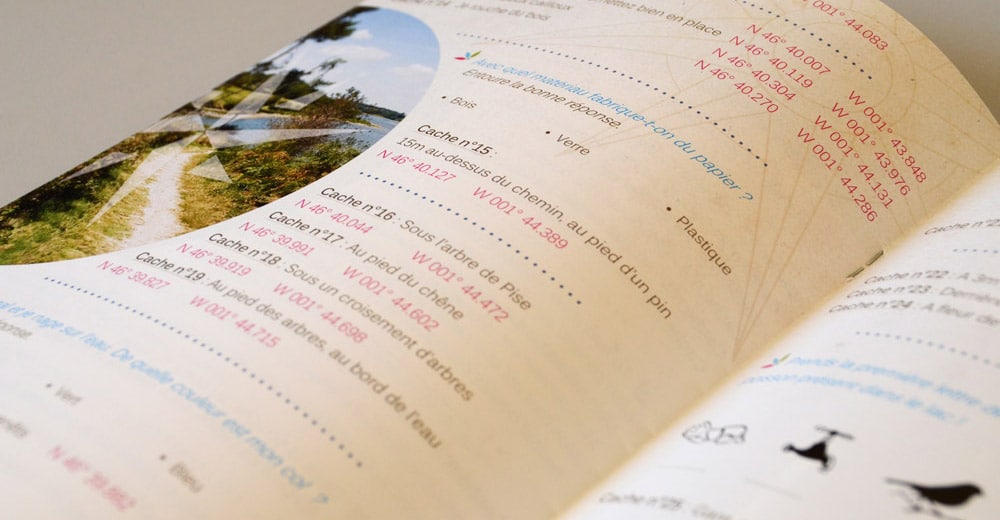 Cache n°14 : Je touche du bois
cailloux
remettez bien en place
W 001° 44.083
N 46° 40.007
W 001° 43.848
N 46° 40.119
W 001° 43.976
N 46° 40.304
W 001° 44.131
N 46° 40.270
W 001° 44.286
Avec quel matériau fabrique-t-on du papier ?
Entoure la bonne réponse.
• Bois
• Verre
• Plastique
Cache n°15 :
15m au-dessus du chemin, au pied d'un pin
N 46° 40.127 W 001° 44.389
Cache n°16 : Sous l'arbre de Pise
N 46° 40.044 W 001° 44.472
Cache n°17 : Au pied du chêne
N 46° 39.991 W 001° 44.602
Cache n°18 : Sous un croisement d'arbres
N 46° 39.919 W 001° 44.698
Cache n°19 : Au pied des arbres, au bord de l'eau
N 46° 39.827 W 001° 44.715
et je nage sur l'eau. De quelle couleur est mon col ?
• Vert
• Bleu
Cache n°22 : A
Cache n°23 : Derrière
Cache n°24 : A fleur d'e
Prends la première lettre d
poisson présent dans le lac !
Cache n°25 :